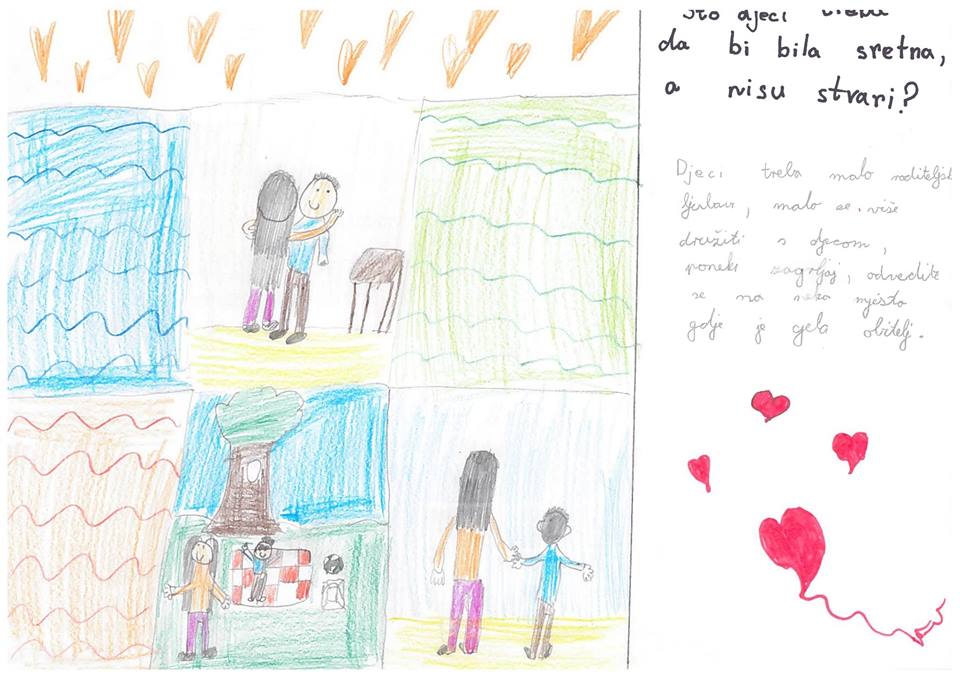 što djeci treba
da bi bila sretna,
a nisu stvari?
Djeci treba malo roditeljsk
ljubavi, malo se više
družiti s djecom,
poneki zagrljaj, odvedite
se na neko mjesto
gdje je cjela obitelj.